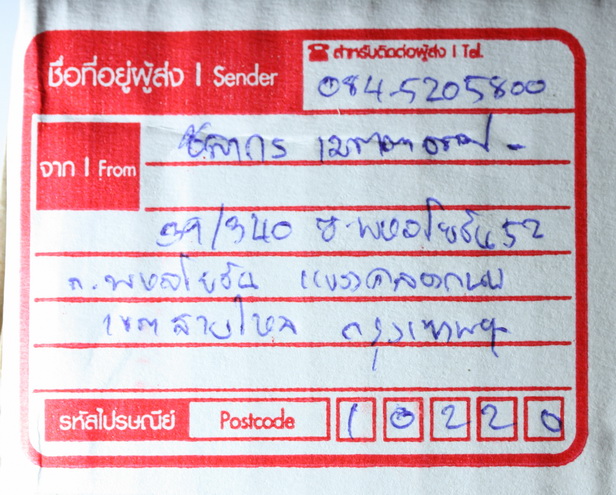 ชื่อที่อยู่ผู้ส่ง | Sender
☎ สำหรับติดต่อผู้ส่ง | Tel.
084-5205800
จาก | From
39/340 ซ.พหลโยธิน 52
ถ.พหลโยธิน แขวงคลองถนน
เขตสายไหม กรุงเทพฯ
รหัสไปรษณีย์ Postcode 10220